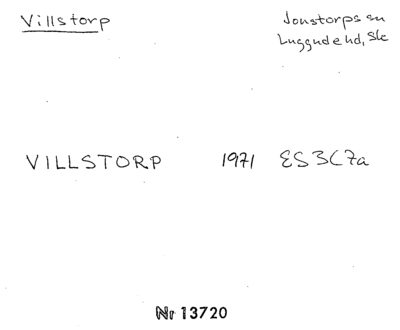 Villstorp
Jonstorps sn
Luggude hd, Sk
VILLSTORP 1971 ES 3C7a
Nr 13720